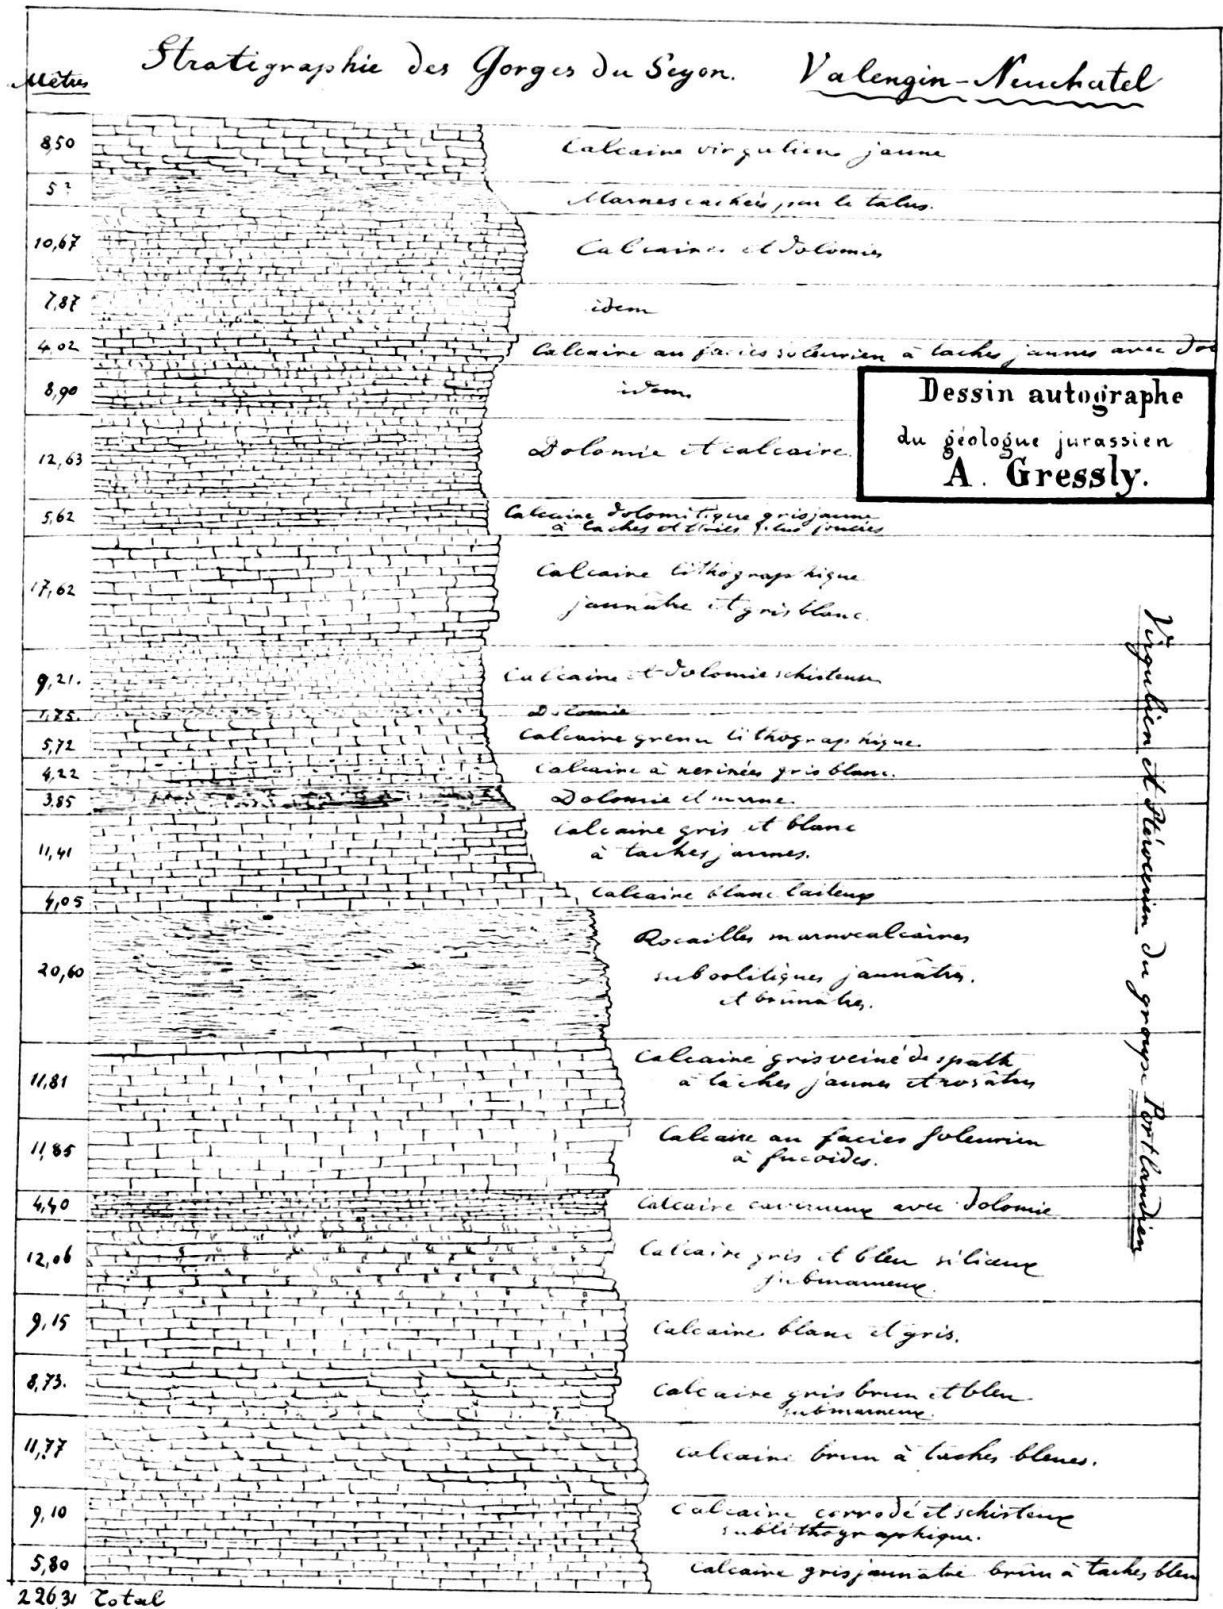 Stratigraphie des Gorges du Seyon. Valengin-Neuchatel
Mètres
8,50 Calcaire virgulien jaune
5? Marnes cachées par le talus.
10,67 Calcaires et dolomies
7,87 idem
4,02 Calcaire au facies soleurien à taches jaunes avec Do
8,90 idem
Dessin autographe
du géologue jurassien
A. Gressly.
12,63 Dolomie et calcaire.
5,62 Calcaire dolomitique gris jaune
à taches et plus foncées
17,62 Calcaire lithographique
jaunâtre et gris blanc.
9,21. Calcaire et dolomie schisteuse
1,75. Dolomie
5,72 Calcaire grenu lithographique.
4,22 Calcaire à nerinées gris blanc.
3,85 Dolomie et marne.
11,41 Calcaire gris et blanc
à taches jaunes.
4,05 Calcaire blanc laiteux
20,60 Rocailles marnocalcaires
suboolitiques jaunâtres.
et brunâtres.
11,81 Calcaire gris veiné de spath
à taches jaunes et rosâtres
11,85 Calcaire au facies soleurien
à fucoides.
4,40 Calcaire caverneux avec dolomie
12,06 Calcaire gris et bleu siliceux
submarneux.
9,15 Calcaire blanc et gris.
8,73. Calcaire gris brun et bleu
submarneux.
11,77 Calcaire brun à taches bleues.
9,10 Calcaire corrodé et schisteux
sublithographique.
5,80 Calcaire gris jaunatre brun à taches bleu
226,31 Total
Virgulien et Ptérocerien du groupe Portlandien